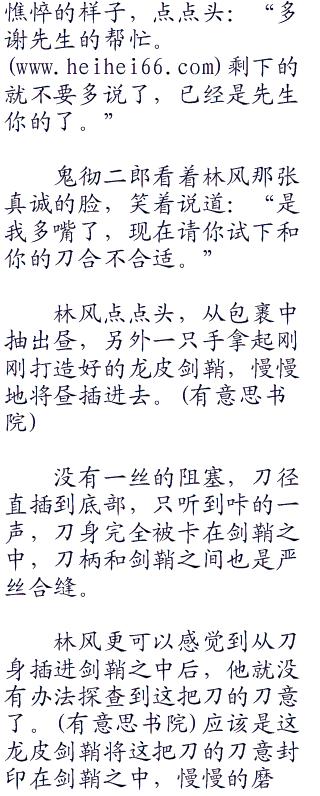 憔悴的样子，点点头：“多
谢先生的帮忙。
(www.heihei66.com)剩下的
就不要多说了，已经是先生
你的了。”
鬼彻二郎看着林风那张
真诚的脸，笑着说道：“是
我多嘴了，现在请你试下和
你的刀合不合适。”
林风点点头，从包裹中
抽出昼，另外一只手拿起刚
刚打造好的龙皮剑鞘，慢慢
地将昼插进去。(有意思书
院)
没有一丝的阻塞，刀径
直插到底部，只听到咔的一
声，刀身完全被卡在剑鞘之
中，刀柄和剑鞘之间也是严
丝合缝。
林风更可以感觉到从刀
身插进剑鞘之中后，他就没
有办法探查到这把刀的刀意
了。(有意思书院)应该是这
龙皮剑鞘将这把刀的刀意封
印在剑鞘之中，慢慢的磨